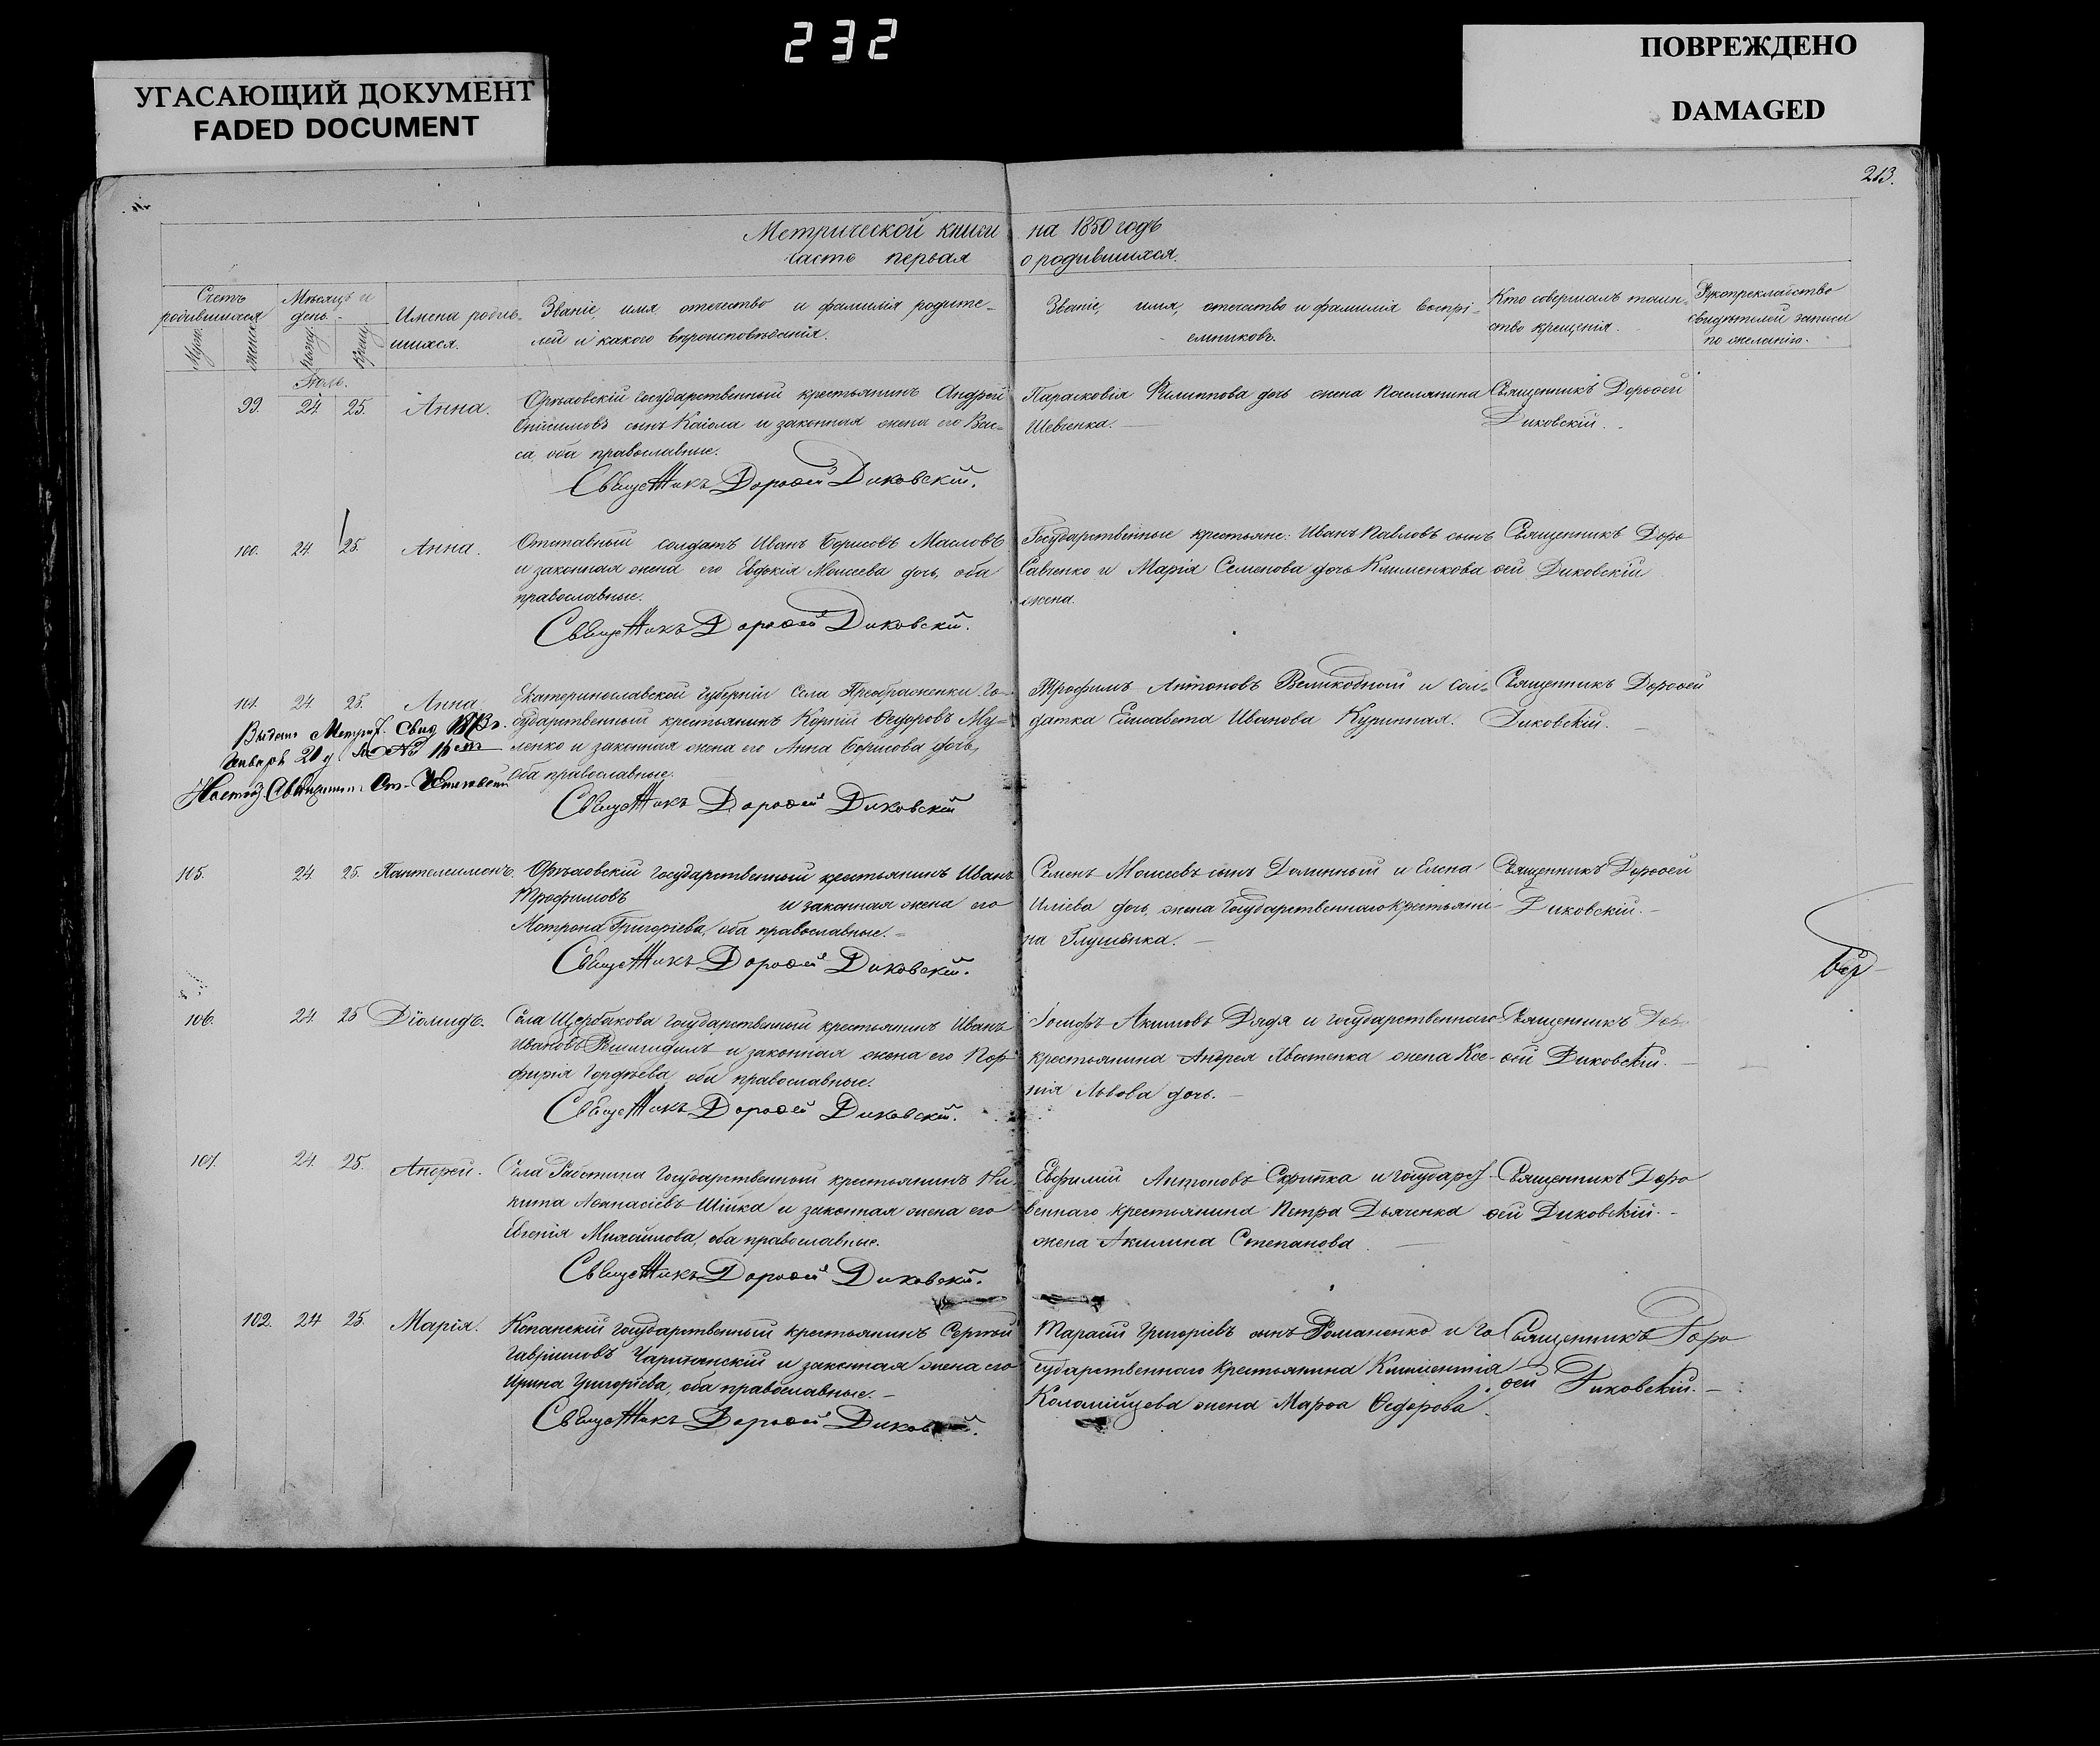 232
УГАСАЮЩИЙ ДОКУМЕНТ
FADED DOCUMENT
ПОВРЕЖДЕНО
DAMAGED
213.
Метрической книги на 1850 годъ
часть первая о родившихся.
Счетъ родившихся
Муж. женск.
Мѣсяцъ и день.
рожд. крещ.
Имена родив-
шихся.
Званіе, имя, отечество и фамилія родите-
лей и какого вѣроисповѣданія.
Званіе, имя, отечество и фамилія воспрі-
емниковъ.
Кто совершалъ таин-
ство крещенія.
Рукоприкладство
свидѣтелей записи
по желанію.
Іюль.
99. 24 25. Анна.
Орѣховскій государственный крестьянинъ Андрей
Онисимовъ сынъ и законная жена его Вас-
са, оба православные.
Священникъ Дорофей Диковскій.
Парасковія Филиппова дочь жена поселянина
Шевченка.
Священникъ Дорофей
Диковскій.
100. 24. 25. Анна.
Отставный солдатъ Иванъ Борисовъ Масловъ
и законная жена его Евдокія Моисеева дочь, оба
православные.
Священникъ Дорофей Диковскій.
Государственные крестьяне: Иванъ Павловъ сынъ
Савченко и Марія Семенова дочь Клименкова
жена.
Священникъ Доро
фей Диковскій
101. 24 25. Анна
Екатеринославской губерніи села Преображенки го-
сударственный крестьянинъ Корній Федоровъ Му-
ленко и законная жена его Анна Борисова дочь,
оба православные.
Священникъ Дорофей Диковскій
Выдано Метрич. Свид. 1873 г.
Январь 20 д за №
Трофимъ Антоновъ Великодный и сол-
датка Елисавета Иванова Курипная.
Священникъ Дорофей
Диковскій.
105. 24 25. Пантелеимонъ.
Орѣховскій государственный крестьянинъ Иванъ
Трофимовъ и законная жена его
Мотрона Григоріева, оба православные.
Священникъ Дорофей Диковскій.
Семенъ Моисеевъ сынъ Долинный и Елена
Иліева дочь, жена государственнаго крестьяни-
на Глущенка.
Священникъ Дорофей
Диковскій.
106. 24. 25 Діомидъ.
Села Щербакова государственный крестьянинъ Иванъ
Ивановъ и законная жена его Пор-
фирія Гордѣева оба православные.
Священникъ Дорофей Диковскій.
Іосифъ Акимовъ Дядя и государственнаго
крестьянина Андрея жена Ксе-
нія Львова дочь.
Священникъ Доро
фей Диковскій.
107. 24. 25. Андрей.
Села Работина государственный крестьянинъ Ни-
кита Афанасіевъ Шійка и законная жена его
Евгенія Михайлова, оба православные.
Священникъ Дорофей Диковскій.
Евфимій Антоновъ Скрипка и государст-
веннаго крестьянина Петра Дьяченка
жена Акилина Степанова.
Священникъ Доро
фей Диковскій.
102. 24 25. Марія.
Копанскій государственный крестьянинъ Сергѣй
Гавріиловъ и законная жена его
Ирина Григоріева, оба православные.
Священникъ Дорофей Диковскій.
Тарасій Григоріевъ сынъ Романенко и го
сударственнаго крестьянина Климентія
Коломійцева жена Марфа Федорова.
Священникъ Доро
фей Диковскій.